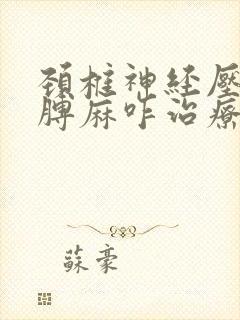 頸椎神经壓
脾麻咋治療
蘇豪